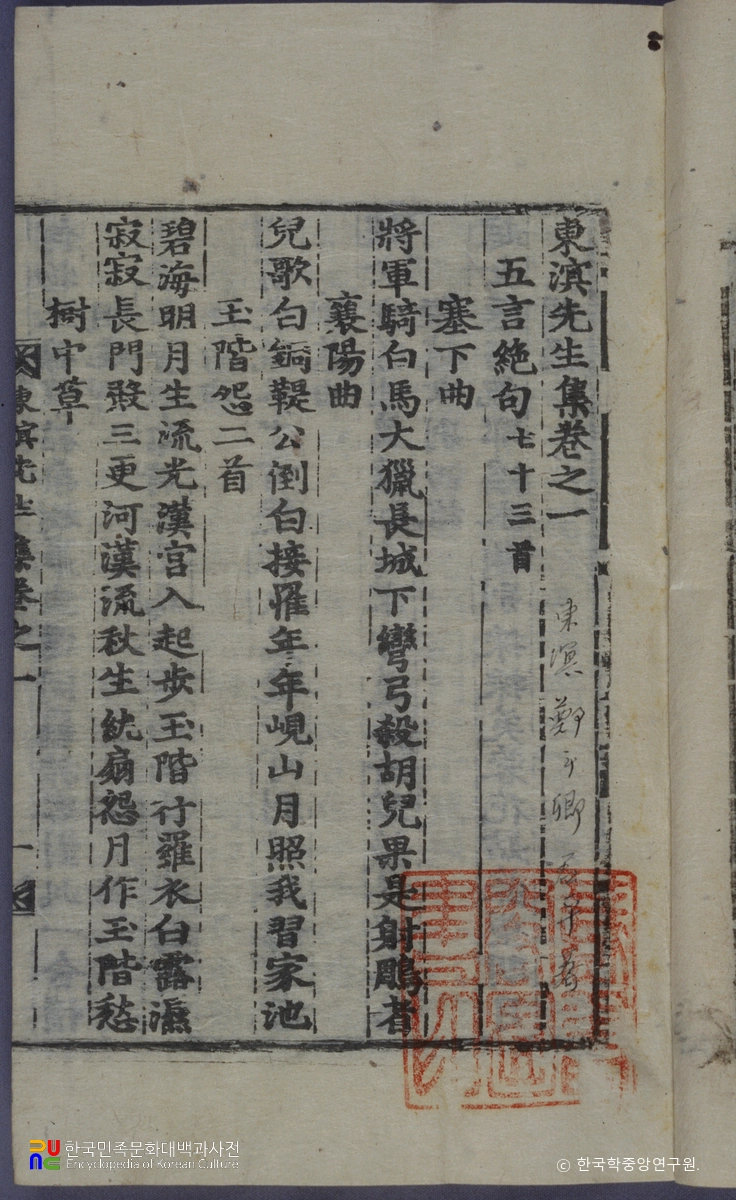 東溟先生集卷之一
五言絶句 七十三首
塞下曲
將軍騎白馬大獵長城下彎弓殺胡兒果是射鵰者
襄陽曲
兒歌白銅鞮公倒白接䍦年年峴山月照我習家池
玉階怨二首
碧海明月生流光漢宮入起步玉階行羅衣白露濕
寂寂長門殿三更河漢流秋生紈扇怨月作玉階愁
樹中草
東溟先生集卷之一
一
東溟 鄭 卿
한국민족문화대백과사전
Encyclopedia of Korean Culture
© 한국학중앙연구원.